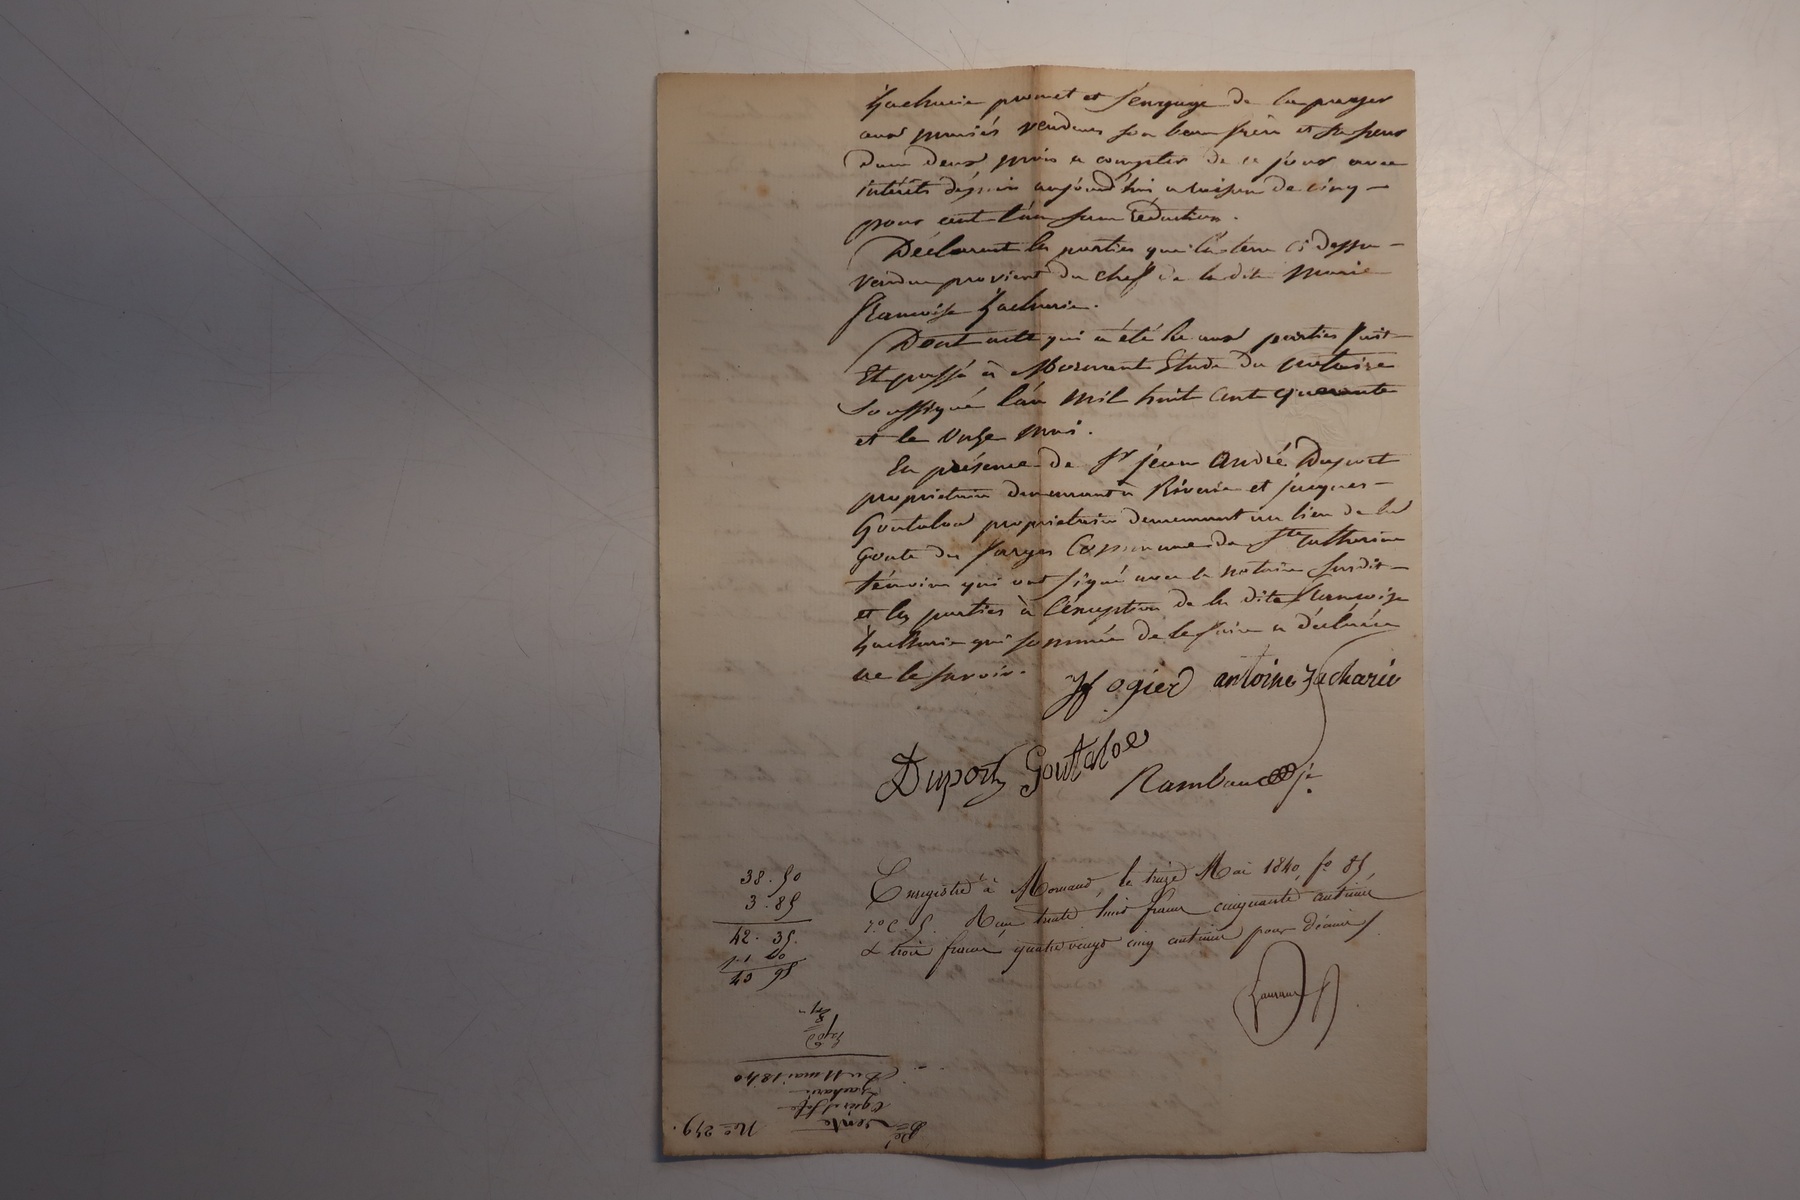 Zacharie promet et s'engage de la payer
aux mariés vendeurs son beau frère et sa sœur
dans deux mois a compter de ce jour avec
intérêts depuis aujourd'hui a raison de cinq
pour cent l'an sans réduction.
Déclarent les parties que la terre ci dessus
vendue provient du chef de la dite Marie
françoise Zacharie.
Dont acte qui a été lu aux parties fait
et passé à Mornant Etude du notaire
soussigné l'an mil huit cent quarante
et le onze Mai.
En présence de Sr jean André Duport
propriétaire demeurant à Riverie et jacques
Goutaloe propriétaire demeurant au lieu de la
Goute des forges Commune de Ste Catherine
témoins qui ont signé avec le notaire susdit
et les parties à l'éxception de la dite françoise
Zacharie qui sommée de le faire a déclarée
ne le savoir.
Jf ogier antoine Zacharie
Duport Goutaloe
Rambaud
38.50
3.85
42.35.
Enregistré à Mornand, le treize Mai 1840, fo 85
ro c. 5. Reçu trente huit francs cinquante centimes
& trois francs quatre vingt cinq centimes pour décime
Expon
Du 11 mai 1840
Zacharie
Ogier et
vente
No 279.